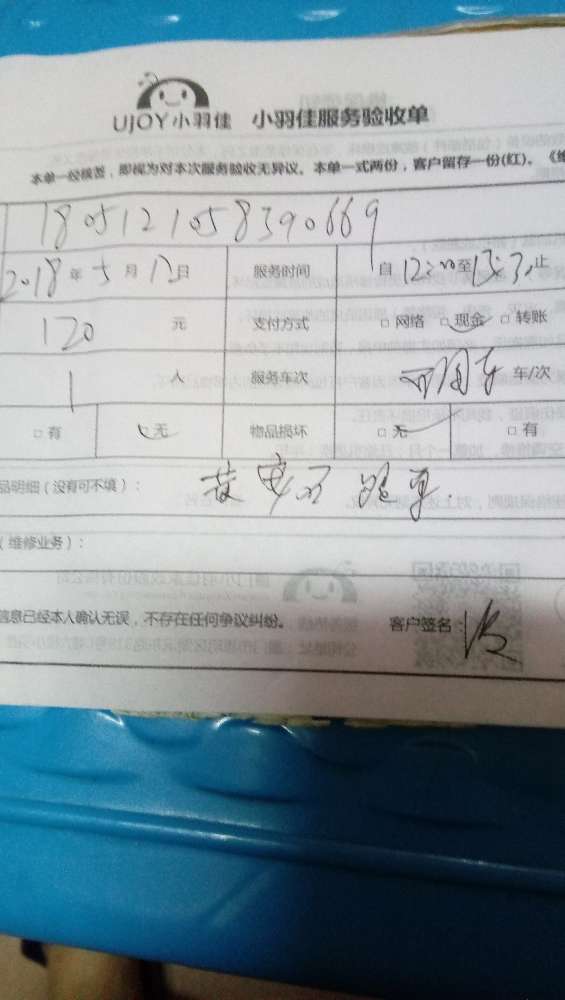 UJOY小羽佳 小羽佳服务验收单
本单一经核签，即视为对本次服务验收无异议。本单一式两份，客户留存一份(红)。
1805121058390669
2018年5月12日 服务时间 自12:00至13:3止
120 元 支付方式 □网络 □现金 □转账
1 人 服务车次 车/次
□有 □无 物品损坏 □无 □有
品明细（没有可不填）：
（维修业务）：
信息已经本人确认无误，不存在任何争议纠纷。 客户签名：